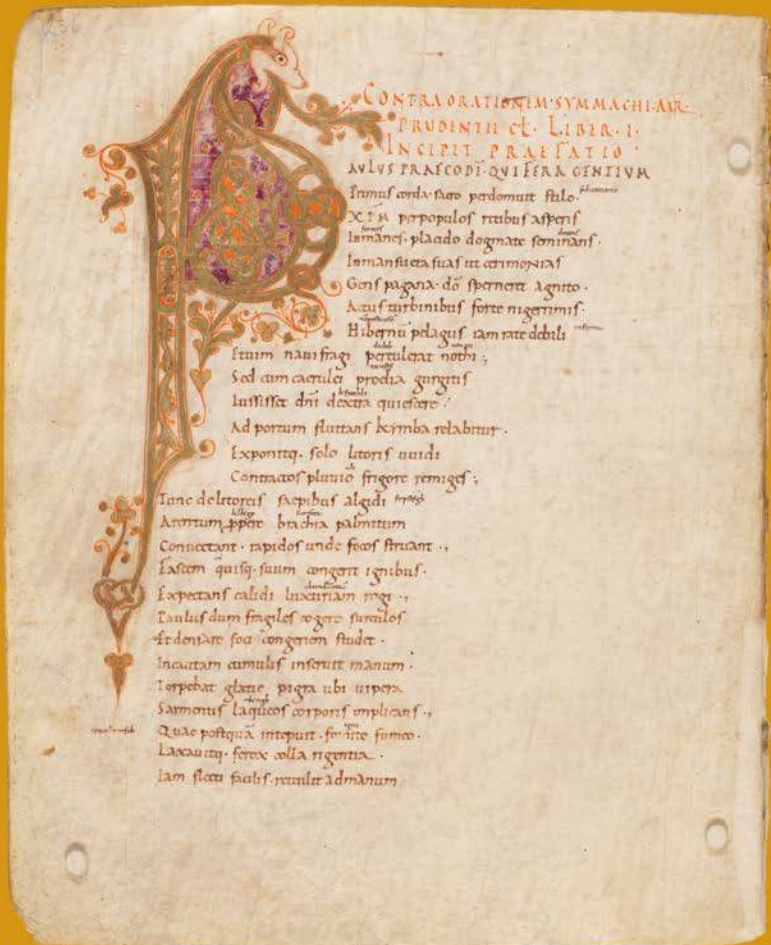 CONTRA ORATIONEM·SYMMACHI·AUR·
PRUDENTII cł· LIBER·I·
INCIPIT PRAEFATIO·
AULUS PRAECO DĪ·QUI FERA GENTIUM
Primus corda·sacro perdomuit stilo·
XPM perpopulos ritibus asperis
Inmanes·placido dogmate seminans·
Inmansueta suas ut cerimonias
Gens pagana·dō sperneret agnito·
Actus turbinibus forte nigerrimis·
Hibernū pelagus iam rate debili
Et uim nauifragi pertulerat nothi·,
Sed cum caerulei proelia gurgitis
Iussisset dn̄i dextra quiescere·
Ad portum fluitans kimba relabitur·
Exponitq· solo litoris uuidi
Contractos pluuio frigore remiges·,
Tunc delitoreis saepibus algidi
Arentum ppere brachia palmitum
Conuectant·rapidos unde focos struant·,
Fascem quisq·suum congerit ignibus·
Expectans calidi luxuriam rogi·,
Paulus dum fragiles cogere surculos
Et densare foci congeriem studet·
Incautam cumulis inseruit manum·
Torpebat glatie pigra ubi uipera
Sarmentis laqueos corporis implicans·,
Quae postquā intepuit·fomite fumeo·
Laxauitq·ferox colla rigentia·
Iam flecti facilis·retulit admanum